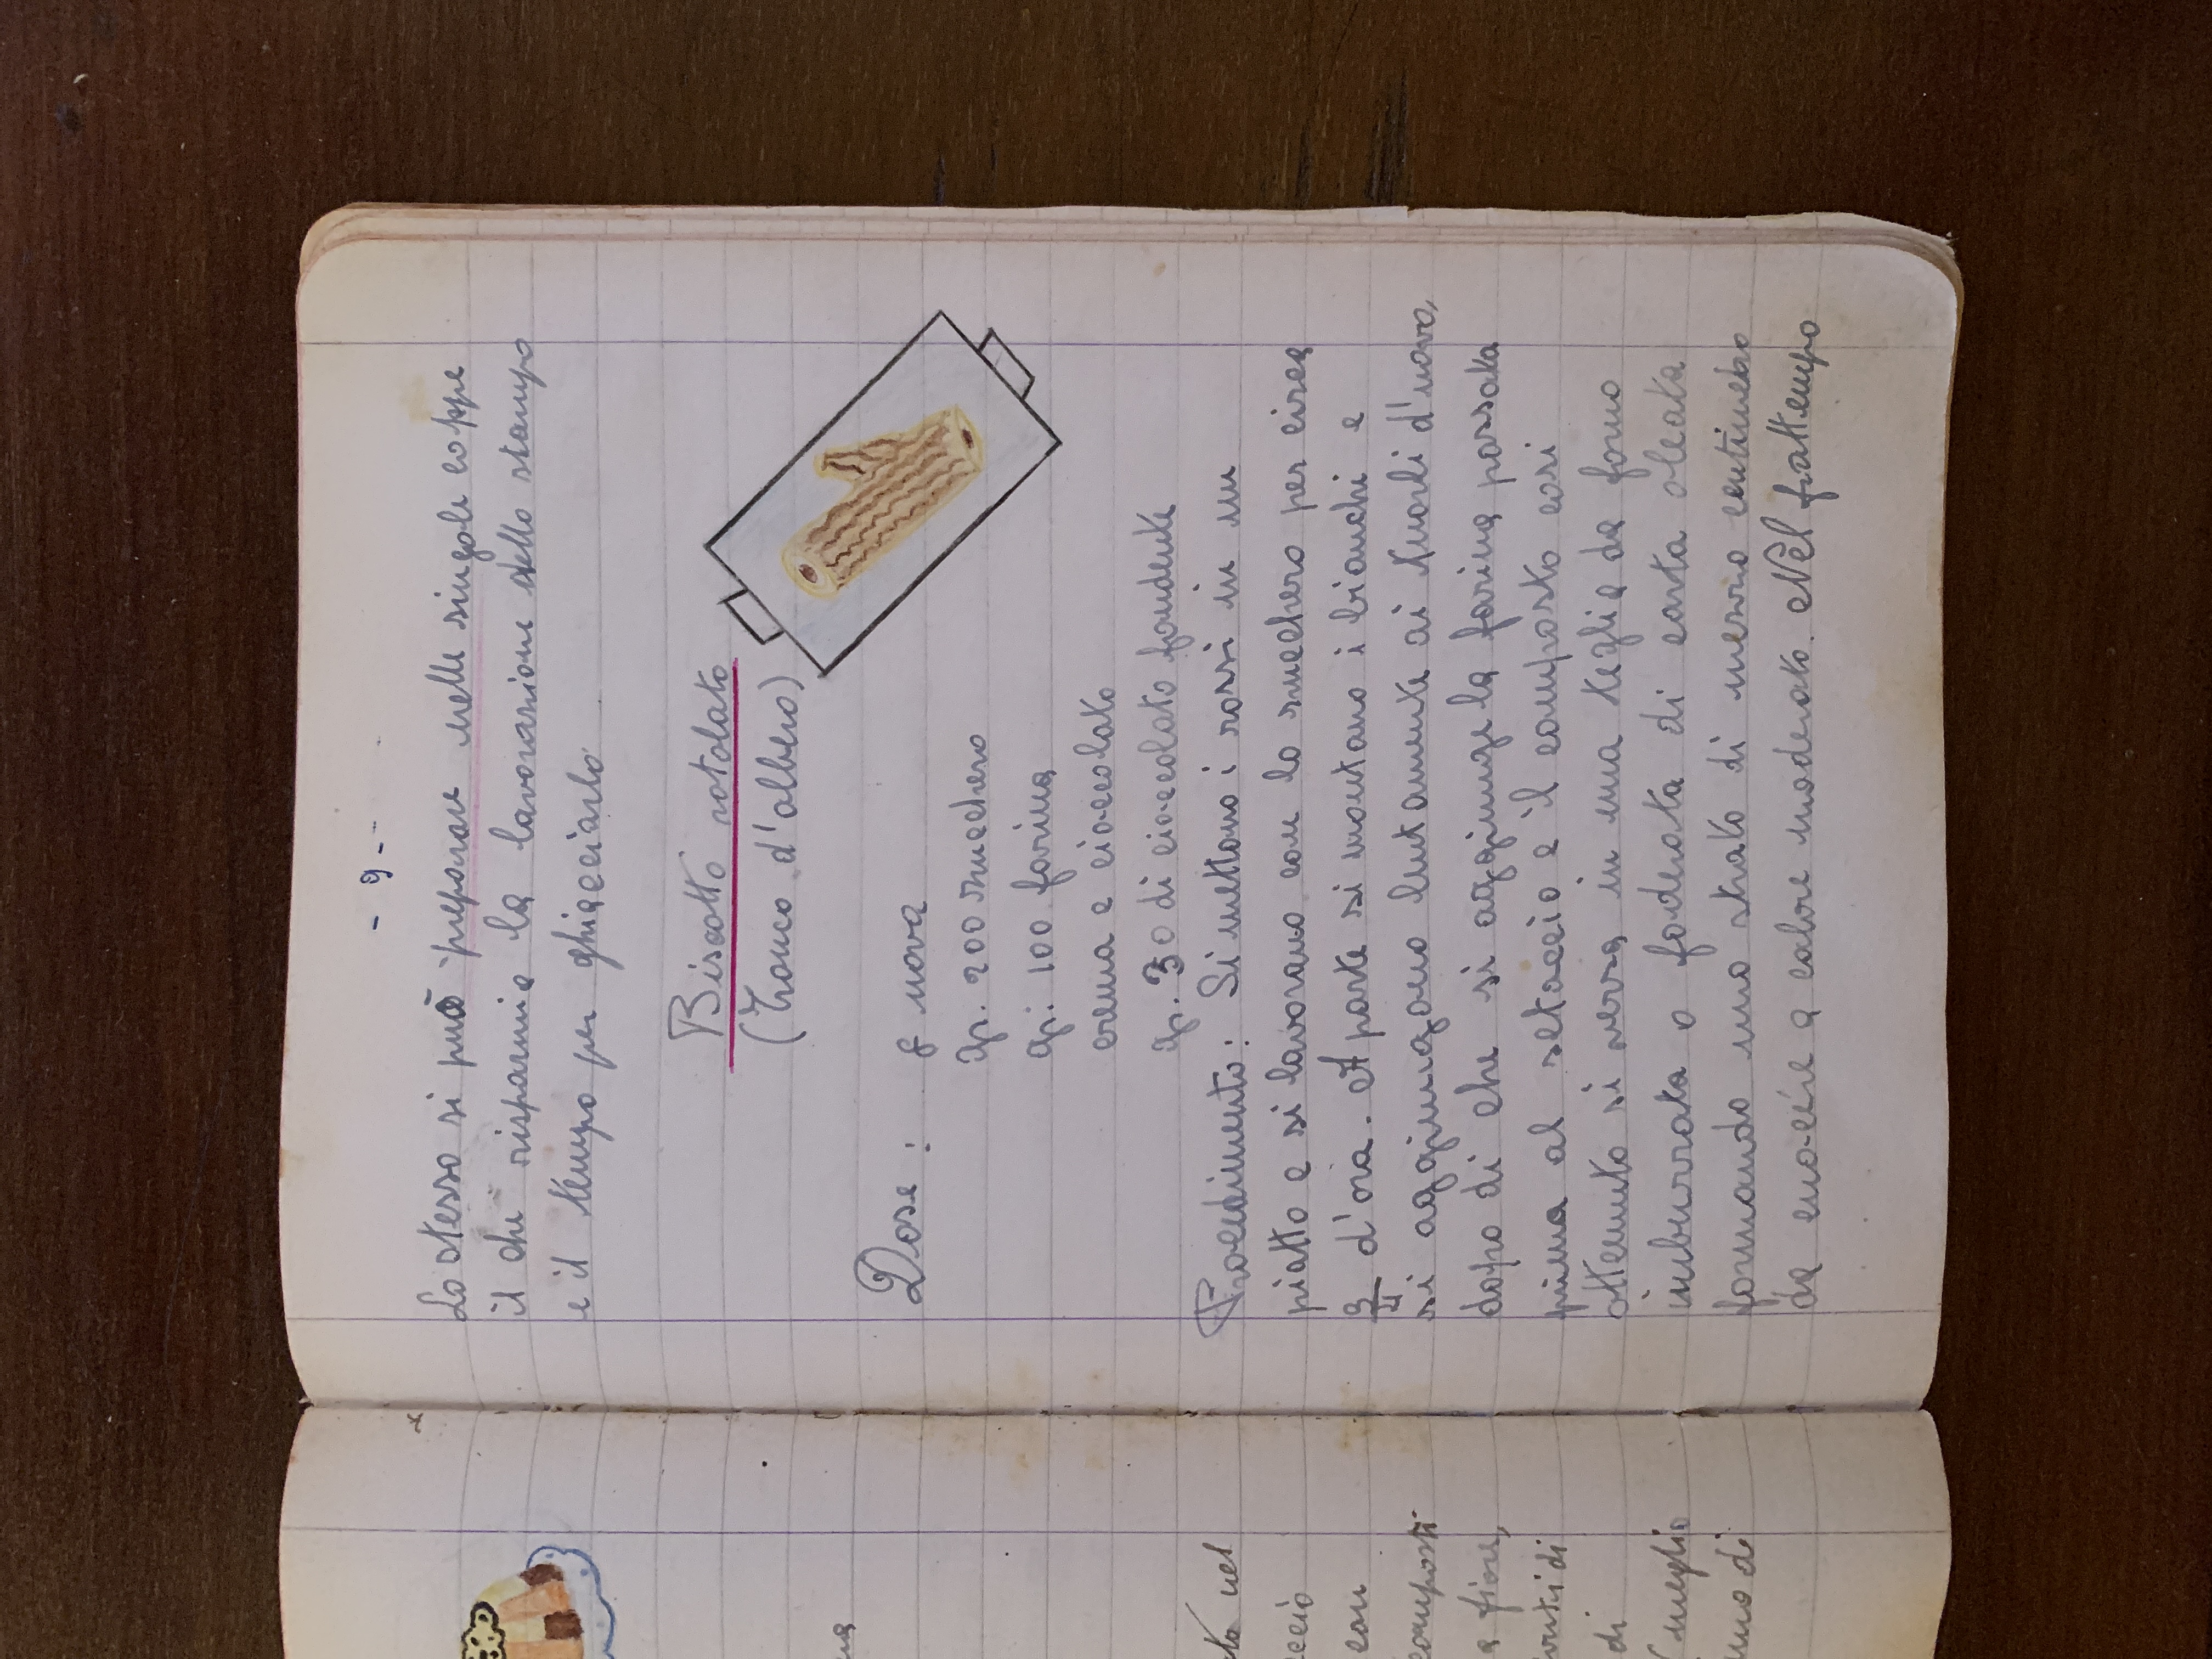 na
to nel
ccciò
con
composti
e fiore,
di
(meglio
uno di
- 9 -
Lo stesso si può preparare nelle singole coppe
il che risparmia la lavorazione dello stampo
e il tempo per ghiacciarlo.
Biscotto rotolato
(Tronco d'albero)
Dose : 8 uova
gr. 200 zucchero
gr. 100 farina
crema e cioccolato
gr. 30 di cioccolato fondente
Procedimento: Si mettono i rossi in un
piatto e si lavorano con lo zucchero per circa
3/4 d'ora. A parte si montano i bianchi e
si aggiungono lentamente ai tuorli d'uovo,
dopo di che si aggiunge la farina passata
prima al setaccio e il composto così
ottenuto si versa in una teglia da forno
imburrata o foderata di carta oleata
formando uno strato di mezzo centimetro
da cuocere a calore moderato. Nel frattempo